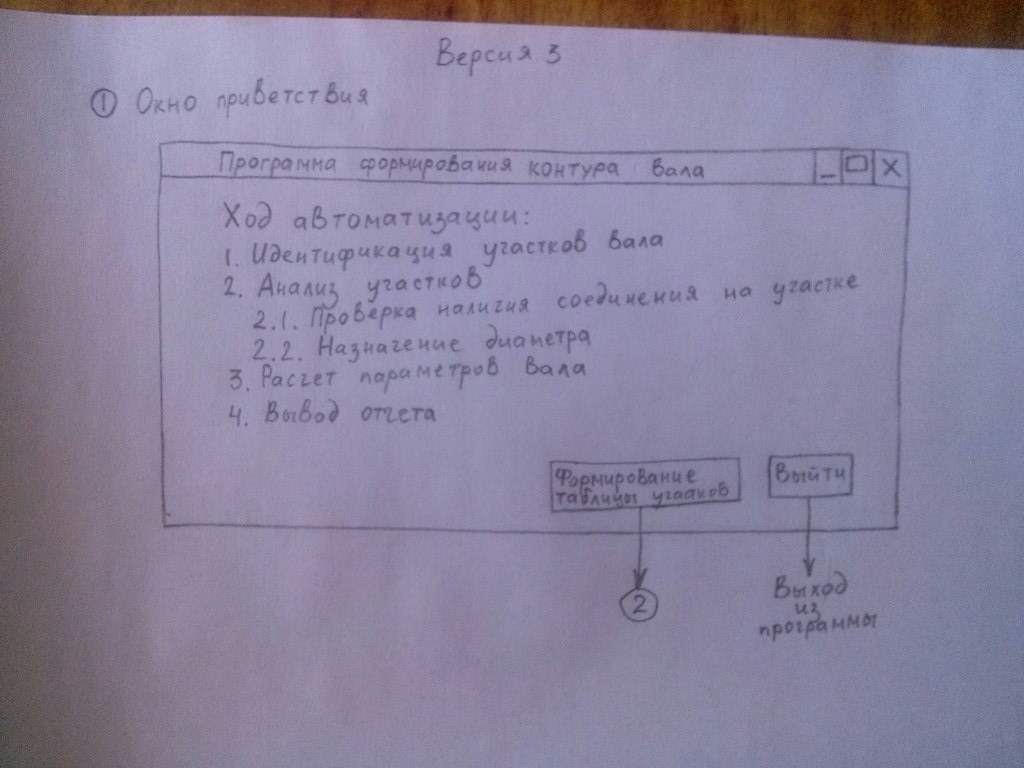 Версия 3
① Окно приветствия
Программа формирования контура вала
Ход автоматизации:
1. Идентификация участков вала
2. Анализ участков
2.1. Проверка наличия соединения на участке
2.2. Назначение диаметра
3. Расчет параметров вала
4. Вывод отчета
Формирование
таблицы
Выйти
2
Выход
из
программы